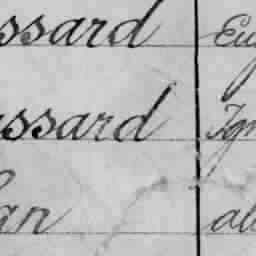 ssard Eu
ussard Ign
an al